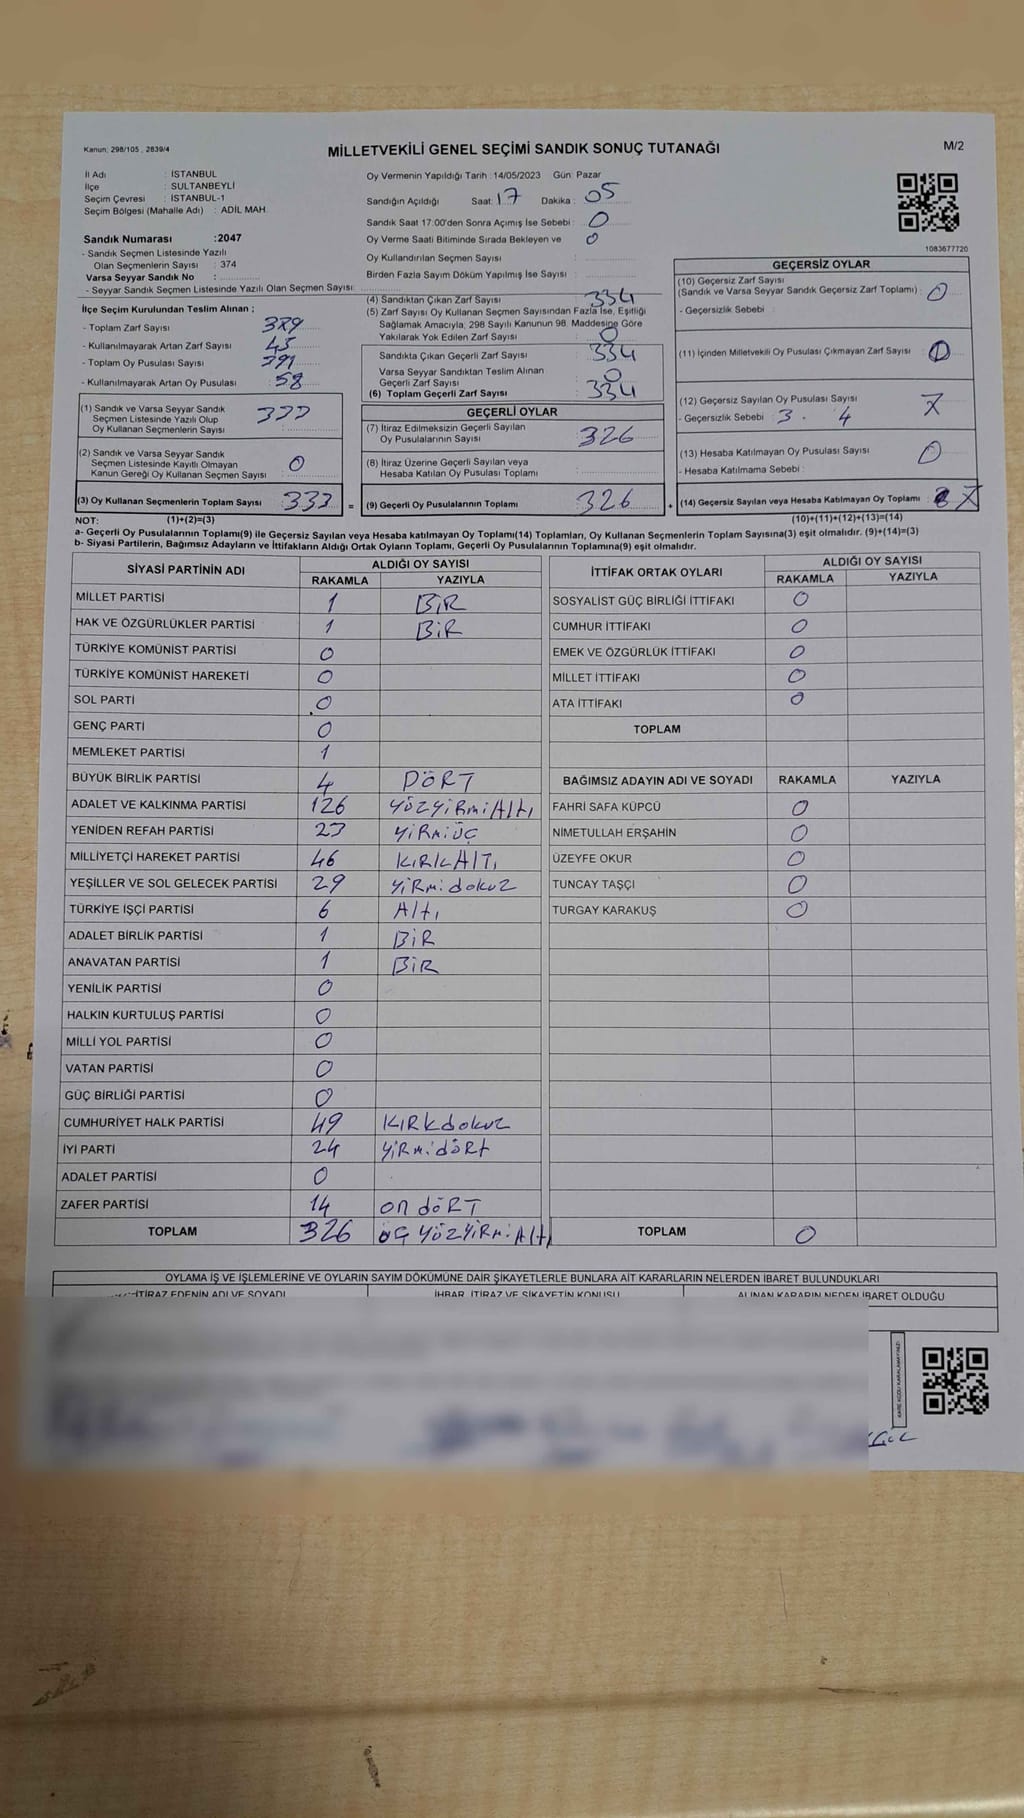 Kanun: 298/105 , 2839/4
MİLLETVEKİLİ GENEL SEÇİMİ SANDIK SONUÇ TUTANAĞI
M/2
İl Adı : İSTANBUL
İlçe : SULTANBEYLİ
Seçim Çevresi : İSTANBUL-1
Seçim Bölgesi (Mahalle Adı) : ADİL MAH.
Sandık Numarası :2047
- Sandık Seçmen Listesinde Yazılı
Olan Seçmenlerin Sayısı : 374
Varsa Seyyar Sandık No :
- Seyyar Sandık Seçmen Listesinde Yazılı Olan Seçmen Sayısı:
Oy Vermenin Yapıldığı Tarih :14/05/2023 Gün: Pazar
Sandığın Açıldığı Saat: 17 Dakika : 05
Sandık Saat 17:00'den Sonra Açımış İse Sebebi : 0
Oy Verme Saati Bitiminde Sırada Bekleyen ve : 0
Oy Kullandırılan Seçmen Sayısı
Birden Fazla Sayım Döküm Yapılmış İse Sayısı :
1083677720
İlçe Seçim Kurulundan Teslim Alınan ;
- Toplam Zarf Sayısı : 379
- Kullanılmayarak Artan Zarf Sayısı : 45
- Toplam Oy Pusulası Sayısı : 391
- Kullanılmayarak Artan Oy Pusulası : 58
(1) Sandık ve Varsa Seyyar Sandık
Seçmen Listesinde Yazılı Olup
Oy Kullanan Seçmenlerin Sayısı : 333
(2) Sandık ve Varsa Seyyar Sandık
Seçmen Listesinde Kayıtlı Olmayan
Kanun Gereği Oy Kullanan Seçmen Sayısı : 0
(3) Oy Kullanan Seçmenlerin Toplam Sayısı : 333
(4) Sandıktan Çıkan Zarf Sayısı : 334
(5) Zarf Sayısı Oy Kullanan Seçmen Sayısından Fazla İse, Eşitliği
Sağlamak Amacıyla; 298 Sayılı Kanunun 98. Maddesine Göre
Yakılarak Yok Edilen Zarf Sayısı : 0
Sandıkta Çıkan Geçerli Zarf Sayısı : 334
Varsa Seyyar Sandıktan Teslim Alınan
Geçerli Zarf Sayısı : 0
(6) Toplam Geçerli Zarf Sayısı : 334
GEÇERLİ OYLAR
(7) İtiraz Edilmeksizin Geçerli Sayılan
Oy Pusulalarının Sayısı : 326
(8) İtiraz Üzerine Geçerli Sayılan veya
Hesaba Katılan Oy Pusulası Toplamı :
= (9) Geçerli Oy Pusulalarının Toplamı : 326
GEÇERSİZ OYLAR
(10) Geçersiz Zarf Sayısı
(Sandık ve Varsa Seyyar Sandık Geçersiz Zarf Toplamı) : 0
- Geçersizlik Sebebi :
(11) İçinden Milletvekili Oy Pusulası Çıkmayan Zarf Sayısı :
(12) Geçersiz Sayılan Oy Pusulası Sayısı : 7
- Geçersizlik Sebebi : 3. 4
(13) Hesaba Katılmayan Oy Pusulası Sayısı : 0
- Hesaba Katılmama Sebebi :
+ (14) Geçersiz Sayılan veya Hesaba Katılmayan Oy Toplamı : 7
NOT: (1)+(2)=(3)
(10)+(11)+(12)+(13)=(14)
a- Geçerli Oy Pusulalarının Toplamı(9) ile Geçersiz Sayılan veya Hesaba katılmayan Oy Toplamı(14) Toplamları, Oy Kullanan Seçmenlerin Toplam Sayısına(3) eşit olmalıdır. (9)+(14)=(3)
b- Siyasi Partilerin, Bağımsız Adayların ve İttifakların Aldığı Ortak Oyların Toplamı, Geçerli Oy Pusulalarının Toplamına(9) eşit olmalıdır.
SİYASİ PARTİNİN ADI ALDIĞI OY SAYISI
RAKAMLA YAZIYLA
MİLLET PARTİSİ 1 BİR
HAK VE ÖZGÜRLÜKLER PARTİSİ 1 BİR
TÜRKİYE KOMÜNİST PARTİSİ 0
TÜRKİYE KOMÜNİST HAREKETİ 0
SOL PARTİ 0
GENÇ PARTİ 0
MEMLEKET PARTİSİ 1
BÜYÜK BİRLİK PARTİSİ 4 DÖRT
ADALET VE KALKINMA PARTİSİ 126 YÜZYİRMİALTI
YENİDEN REFAH PARTİSİ 23 YİRMİÜÇ
MİLLİYETÇİ HAREKET PARTİSİ 46 KIRKALTI
YEŞİLLER VE SOL GELECEK PARTİSİ 29 YİRMİdokuz
TÜRKİYE İŞÇİ PARTİSİ 6 Altı
ADALET BİRLİK PARTİSİ 1 BİR
ANAVATAN PARTİSİ 1 BİR
YENİLİK PARTİSİ 0
HALKIN KURTULUŞ PARTİSİ 0
MİLLİ YOL PARTİSİ 0
VATAN PARTİSİ 0
GÜÇ BİRLİĞİ PARTİSİ 0
CUMHURİYET HALK PARTİSİ 49 KIRKdokuz
İYİ PARTİ 24 YİRMİdÖRt
ADALET PARTİSİ 0
ZAFER PARTİSİ 14 on dÖRT
TOPLAM 326 üç YÜZYİRMİAltı
İTTİFAK ORTAK OYLARI ALDIĞI OY SAYISI
RAKAMLA YAZIYLA
SOSYALİST GÜÇ BİRLİĞİ İTTİFAKI 0
CUMHUR İTTİFAKI 0
EMEK VE ÖZGÜRLÜK İTTİFAKI 0
MİLLET İTTİFAKI 0
ATA İTTİFAKI 0
TOPLAM
BAĞIMSIZ ADAYIN ADI VE SOYADI RAKAMLA YAZIYLA
FAHRİ SAFA KÜPCÜ 0
NİMETULLAH ERŞAHİN 0
ÜZEYFE OKUR 0
TUNCAY TAŞÇI 0
TURGAY KARAKUŞ 0
TOPLAM 0
OYLAMA İŞ VE İŞLEMLERİNE VE OYLARIN SAYIM DÖKÜMÜNE DAİR ŞİKAYETLERLE BUNLARA AİT KARARLARIN NELERDEN İBARET BULUNDUKLARI
İTİRAZ EDENİN ADI VE SOYADI İHBAR, İTİRAZ VE ŞİKAYETİN KONUSU ALINAN KARARIN NEDEN İBARET OLDUĞU